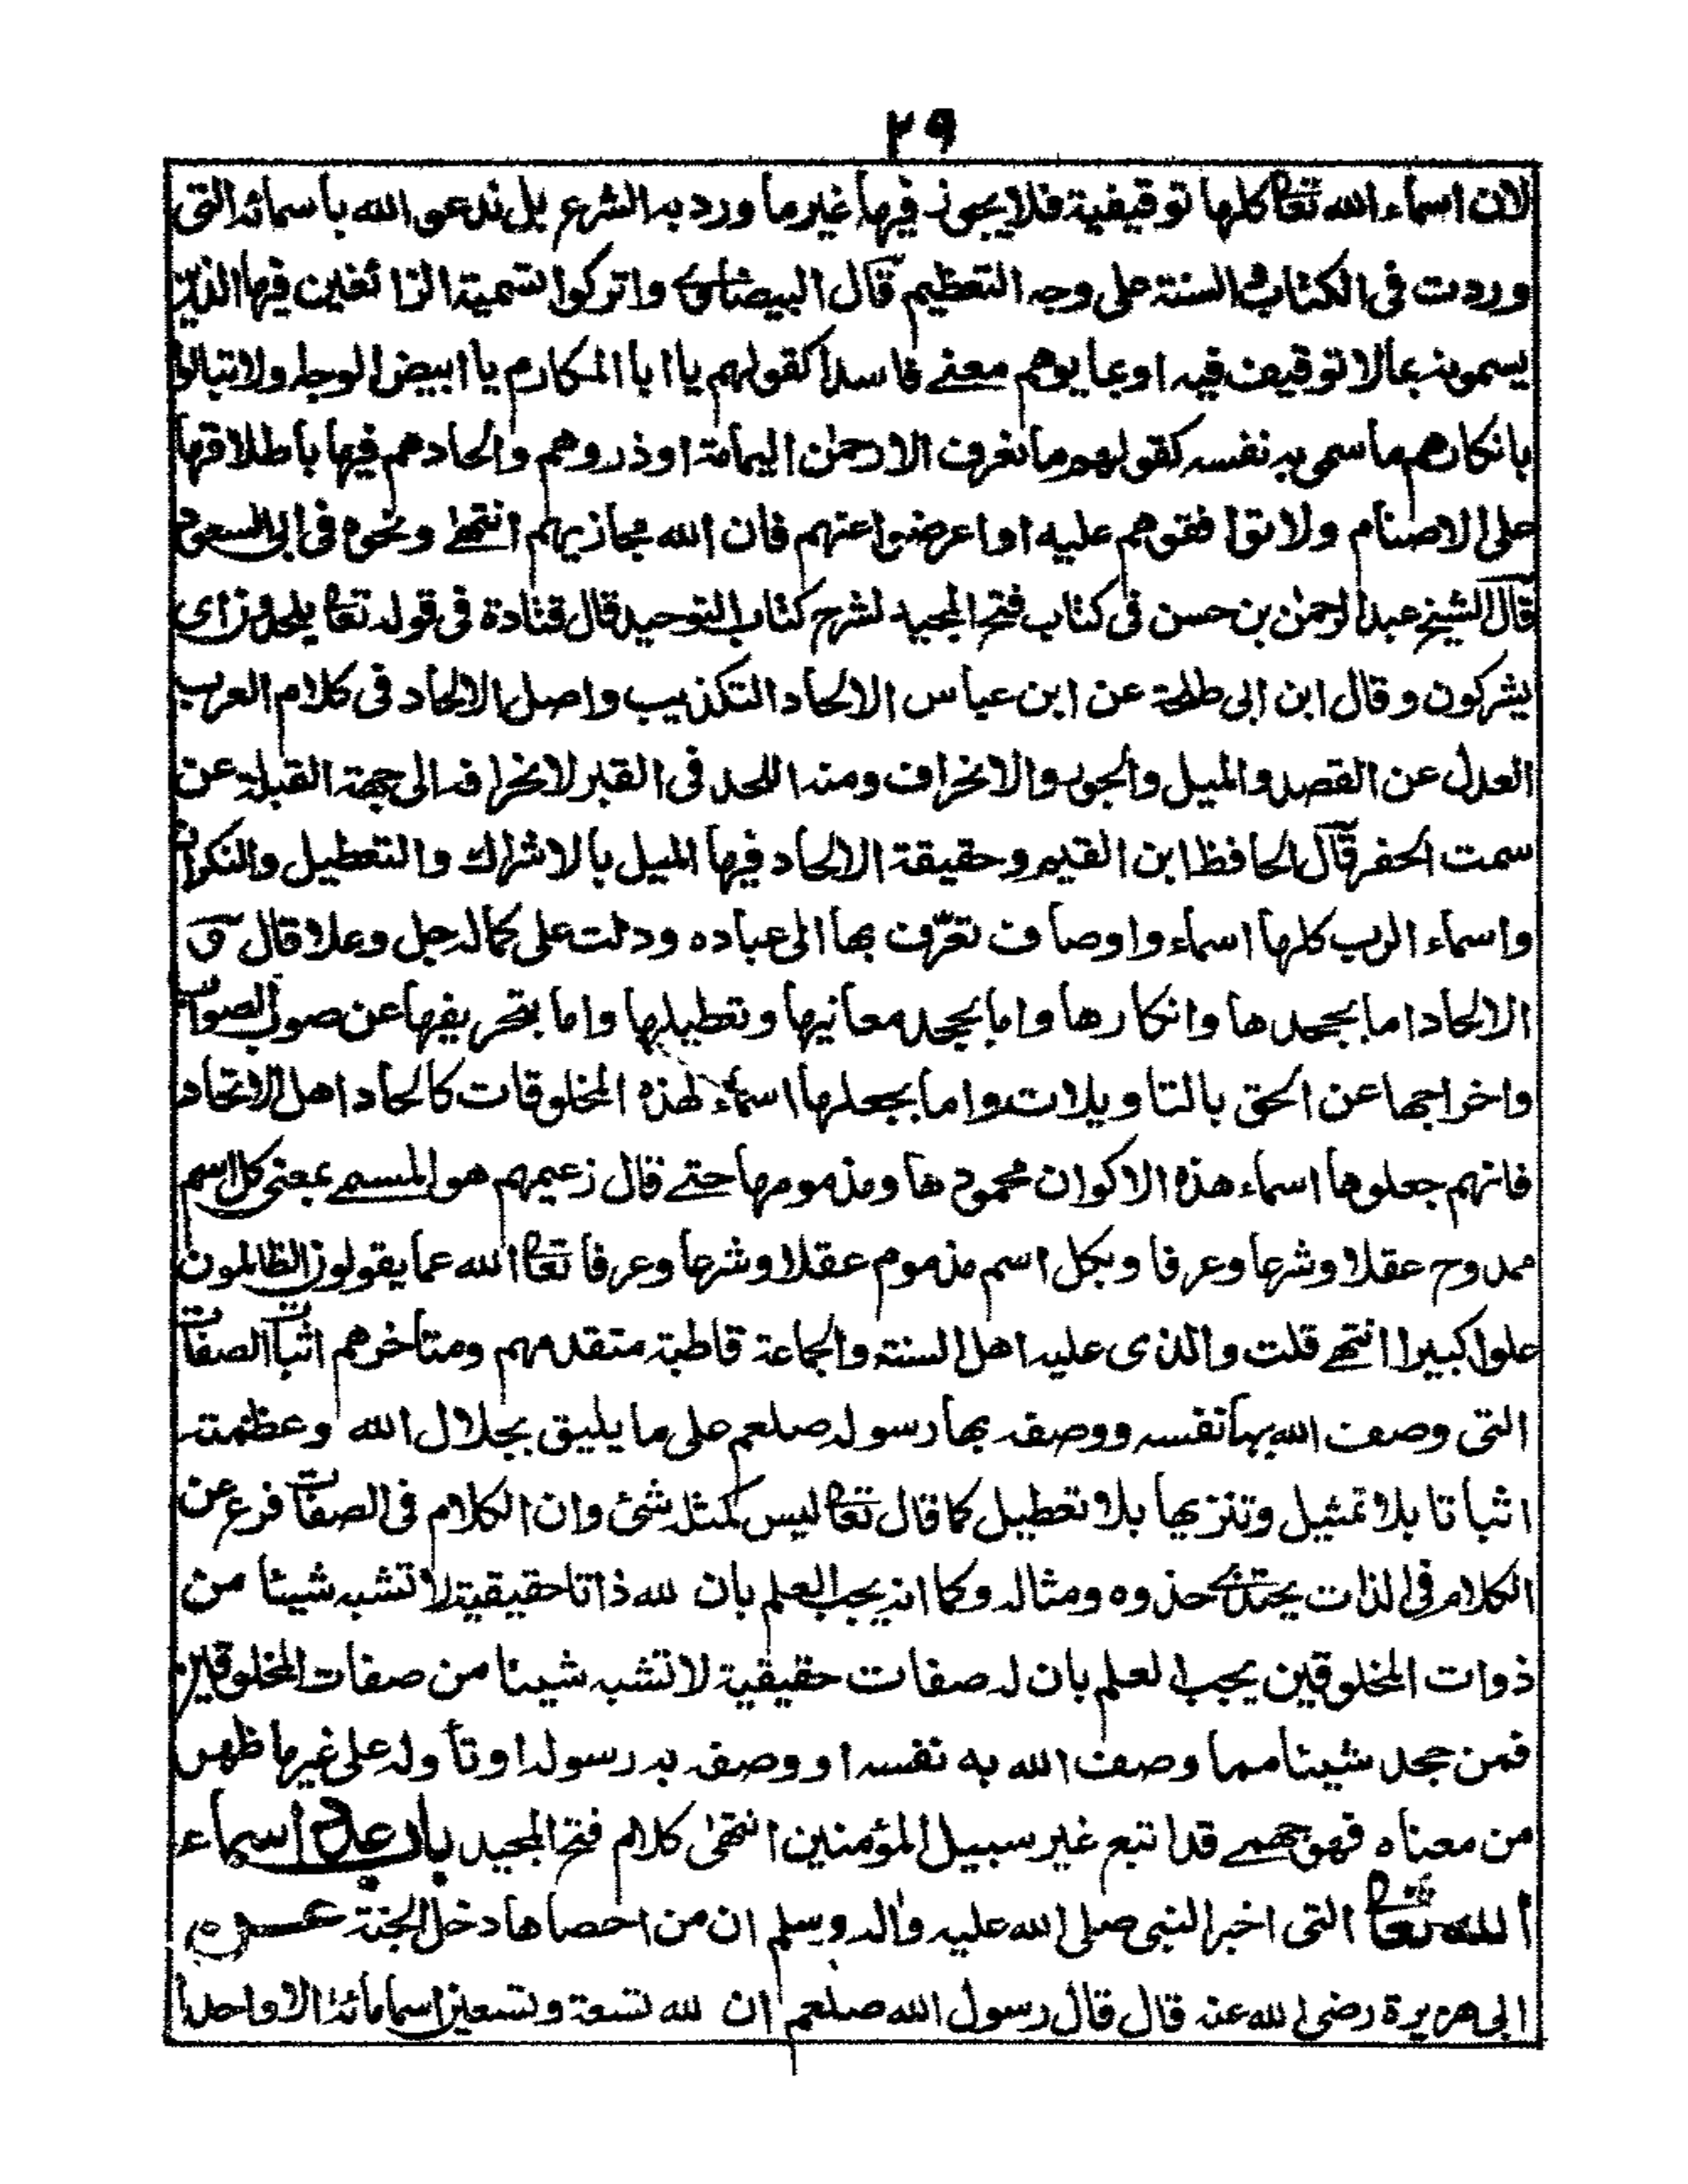 ٢٩
لان اسماء الله تعا كلها توقيفية فلا يجوز فيها غير ما ورد به الشرع بل ندعو الله باسمائه التى
وردت فى الكتاب والسنة على وجه التعظيم قال البيضاوى واتركوا تسمية الزائغين فيها الذين
يسمونه بما لا توقيف فيه او بما يوهم معنے فاسدا كقولهم يا ابا المكارم يا ابيض الوجه ولا تبالوا
بانكارهم ما سمى به نفسه كقولهم ما نعرف الا رحمٰن اليمامة او ذروهم والحادهم فيها باطلاقها
على الاصنام ولا توافقوهم عليه او اعرضوا عنهم فان الله مجازيهم انتهى ونحوه فى ابى السعود
قال الشيخ عبد الرحمٰن بن حسن فى كتاب فتح المجيد لشرح كتاب التوحيد قال قتادة فى قوله تعا يلحدون اى
يشركون وقال ابن ابى طلحة عن ابن عباس الالحاد التكذيب واصل الالحاد فى كلام العرب
العدل عن القصد والميل والجور والانحراف ومنه اللحد فى القبر لانحرافه الى جهة القبلة عن
سمت الحفر قال الحافظ ابن القيم وحقيقة الالحاد فيها الميل بالاشراك والتعطيل والنكران
واسماء الرب كلها اسماء واوصاف تعرّف بها الى عباده ودلت على كماله جل وعلا قال و
الالحاد اما بجحدها وانكارها واما بجحد معانيها وتعطيلها واما بتحريفها عن صوب الصواب
واخراجها عن الحق بالتاويلات واما بجعلها اسماء لهذه المخلوقات كالحاد اهل الاتحاد
فانهم جعلوها اسماء هذه الاكوان محمودها ومذمومها حتے قال زعيمهم هو المسمے بمعنى كل اسم
ممدوح عقلا وشرعا وعرفا وبكل اسم مذموم عقلا وشرعا وعرفا تعا الله عما يقولون الظالمون
علوا كبيرا انتهے قلت والذى عليه اهل السنة والجماعة قاطبة متقدمهم ومتأخرهم اثبات الصفات
التى وصف الله بها نفسه ووصفه بها رسوله صلعم على ما يليق بجلال الله وعظمته
اثباتا بلا تمثيل وتنزيها بلا تعطيل كما قال تعا ليس كمثله شئ وان الكلام فى الصفات فرع عن
الكلام فى الذات يحتذى حذوه ومثاله وكما انه يجب العلم بان لله ذاتا حقيقية لا تشبه شيئا من
ذوات المخلوقين يجب العلم بان له صفات حقيقية لا تشبه شيئا من صفات المخلوقين
فمن جحد شيئا مما وصف الله به نفسه او وصفه به رسوله او تأوله على غير ما ظهر
من معناه فهو جهمے قد اتبع غير سبيل المؤمنين انتهى كلام فتح المجيد باب عد اسماء
الله تعا التى اخبر النبى صلى الله عليه واٰله وسلم ان من احصاها دخل الجنة عن
ابى هريرة رضى الله عنه قال قال رسول الله صلعم ان لله تسعة وتسعين اسما مائة الا واحدا